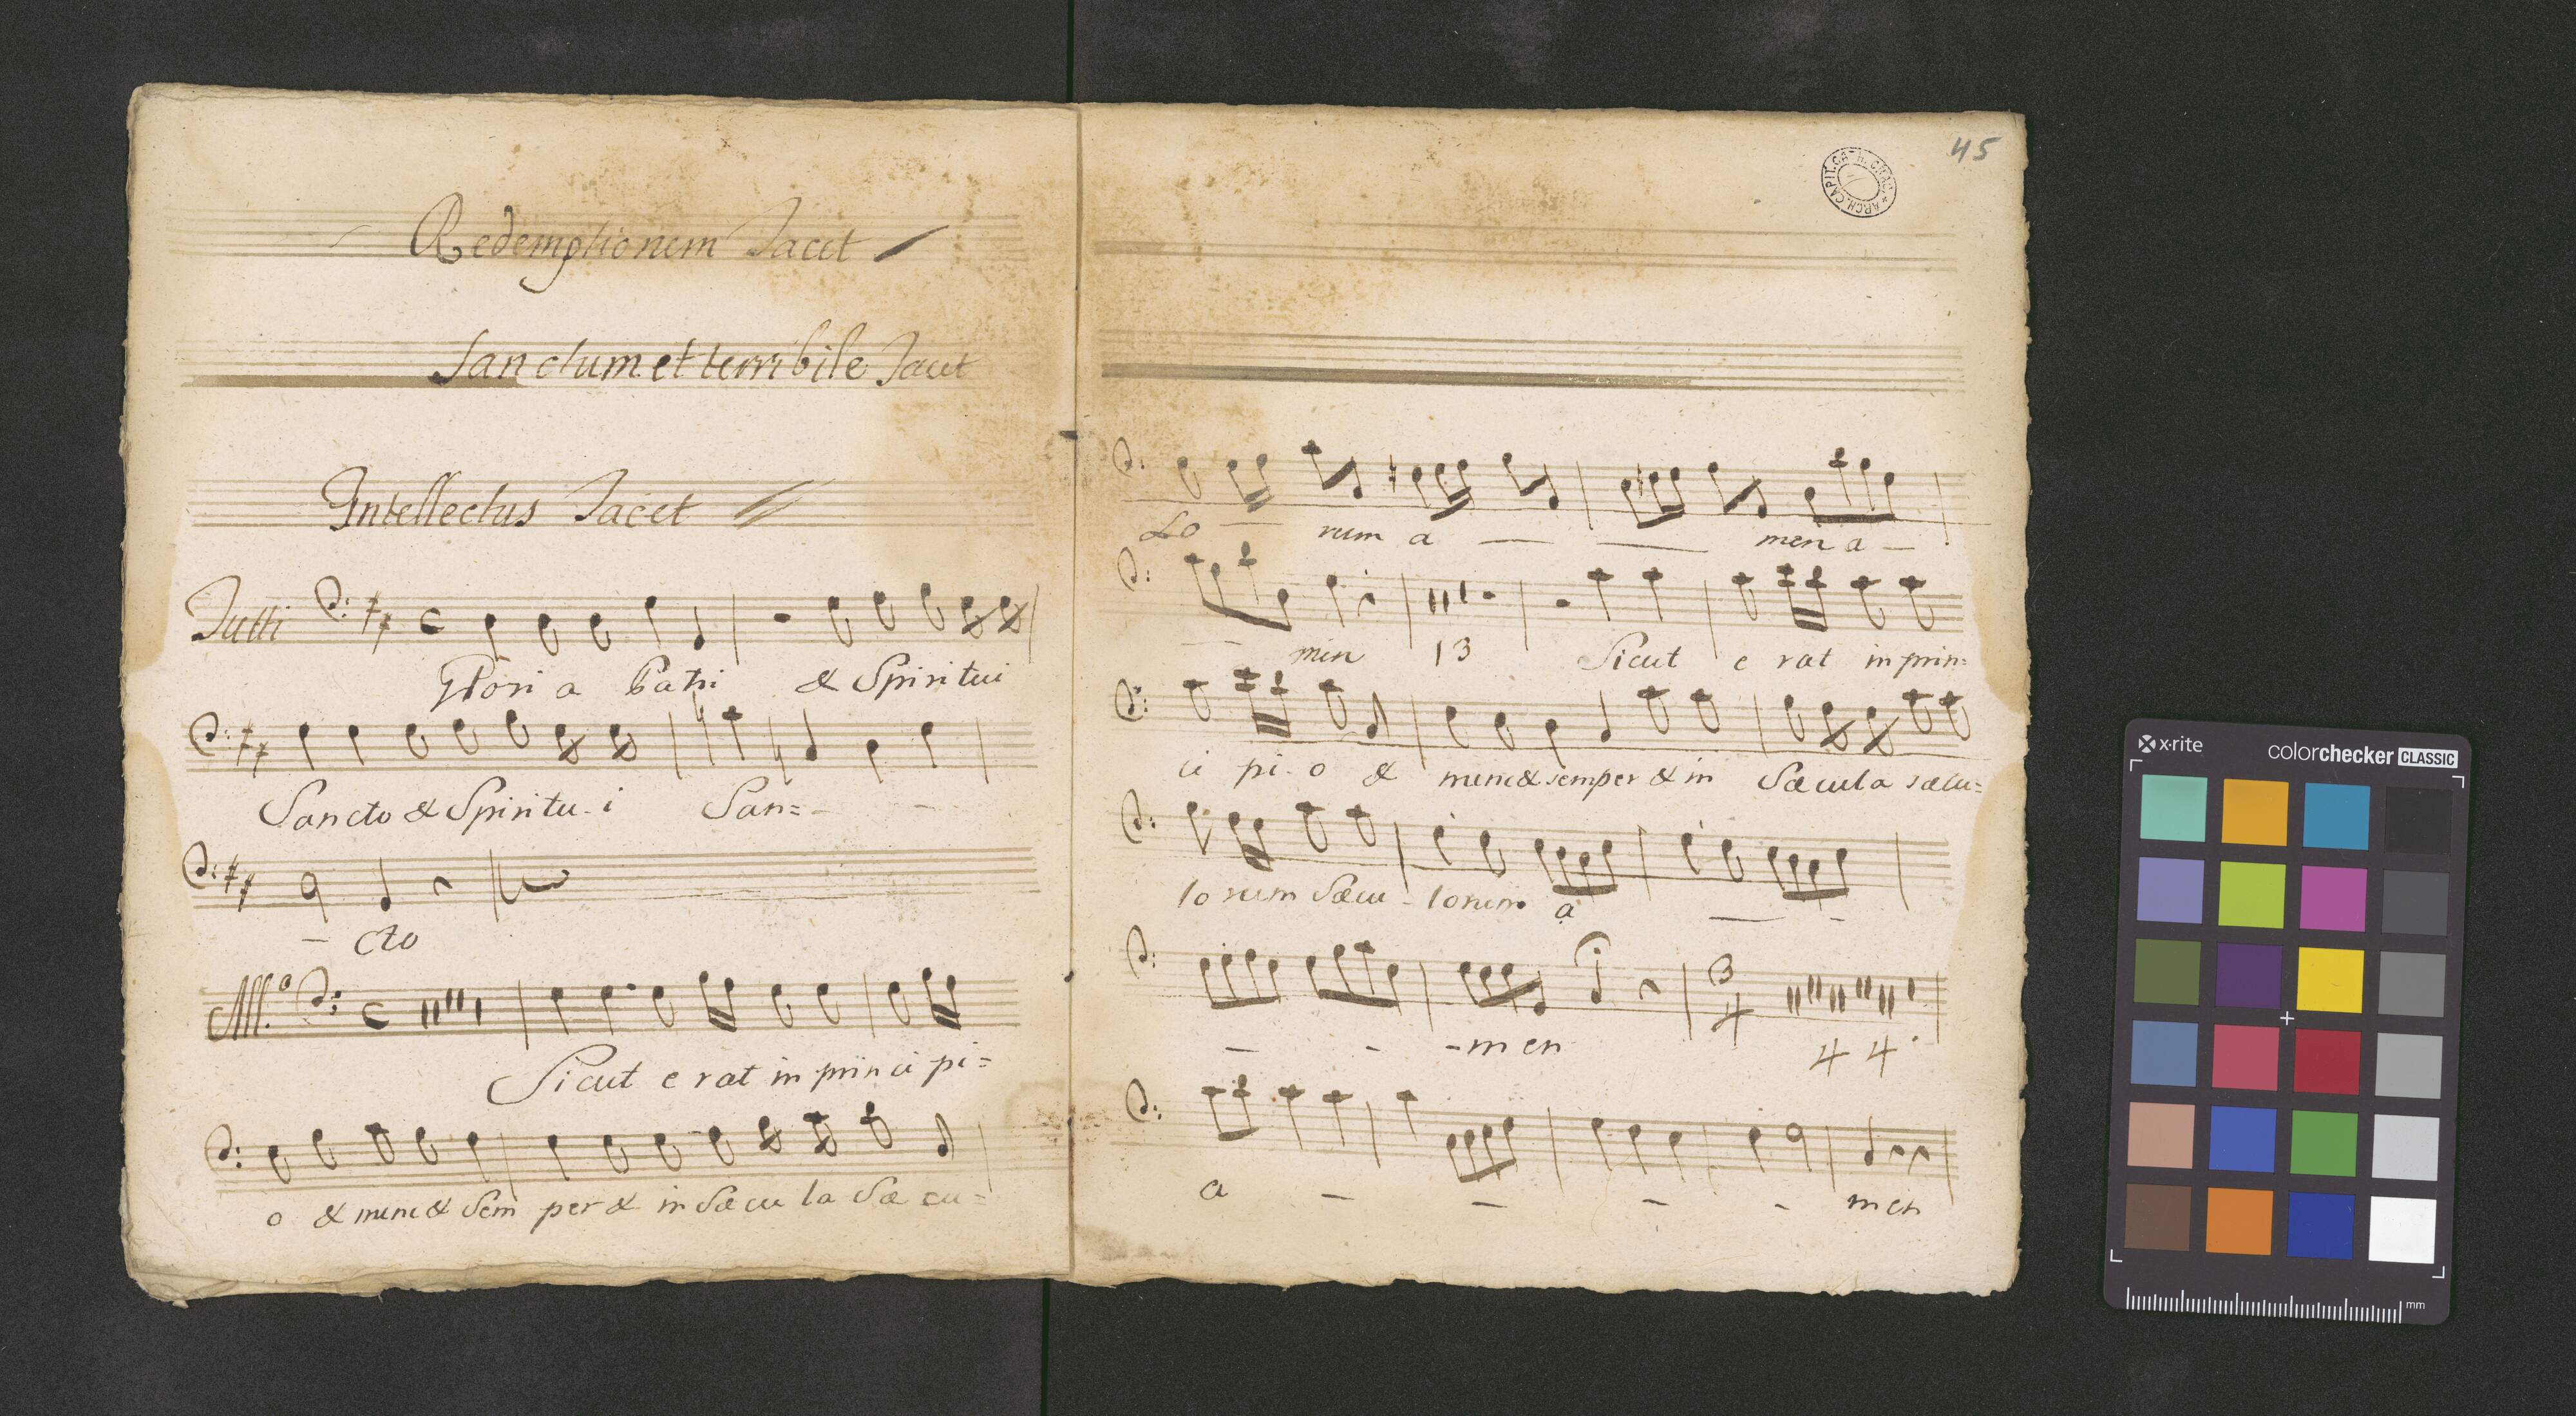 Redemptionem Tacet
Sanctum et terribile Tacet
Intellectus Tacet
Tutti
Glori a Patri & Spiritui
Sancto & Spiritu-i San=-
- cto
All.o
Sicut e rat in prin ci pi=
o & nunc & Sem per & in Sæ cu la Sæ cu=
45
ARCH. CAPIT. CA
Lo rum a — — men a —
men 13 Sicut e rat in prin=
ci pi-o & nunc & semper & in Sæ cula sæcu=
lo rum Sæcu-lorum a — -
- - -men 3 4 4 4.
a - - - - men
x-rite colorchecker CLASSIC
mm